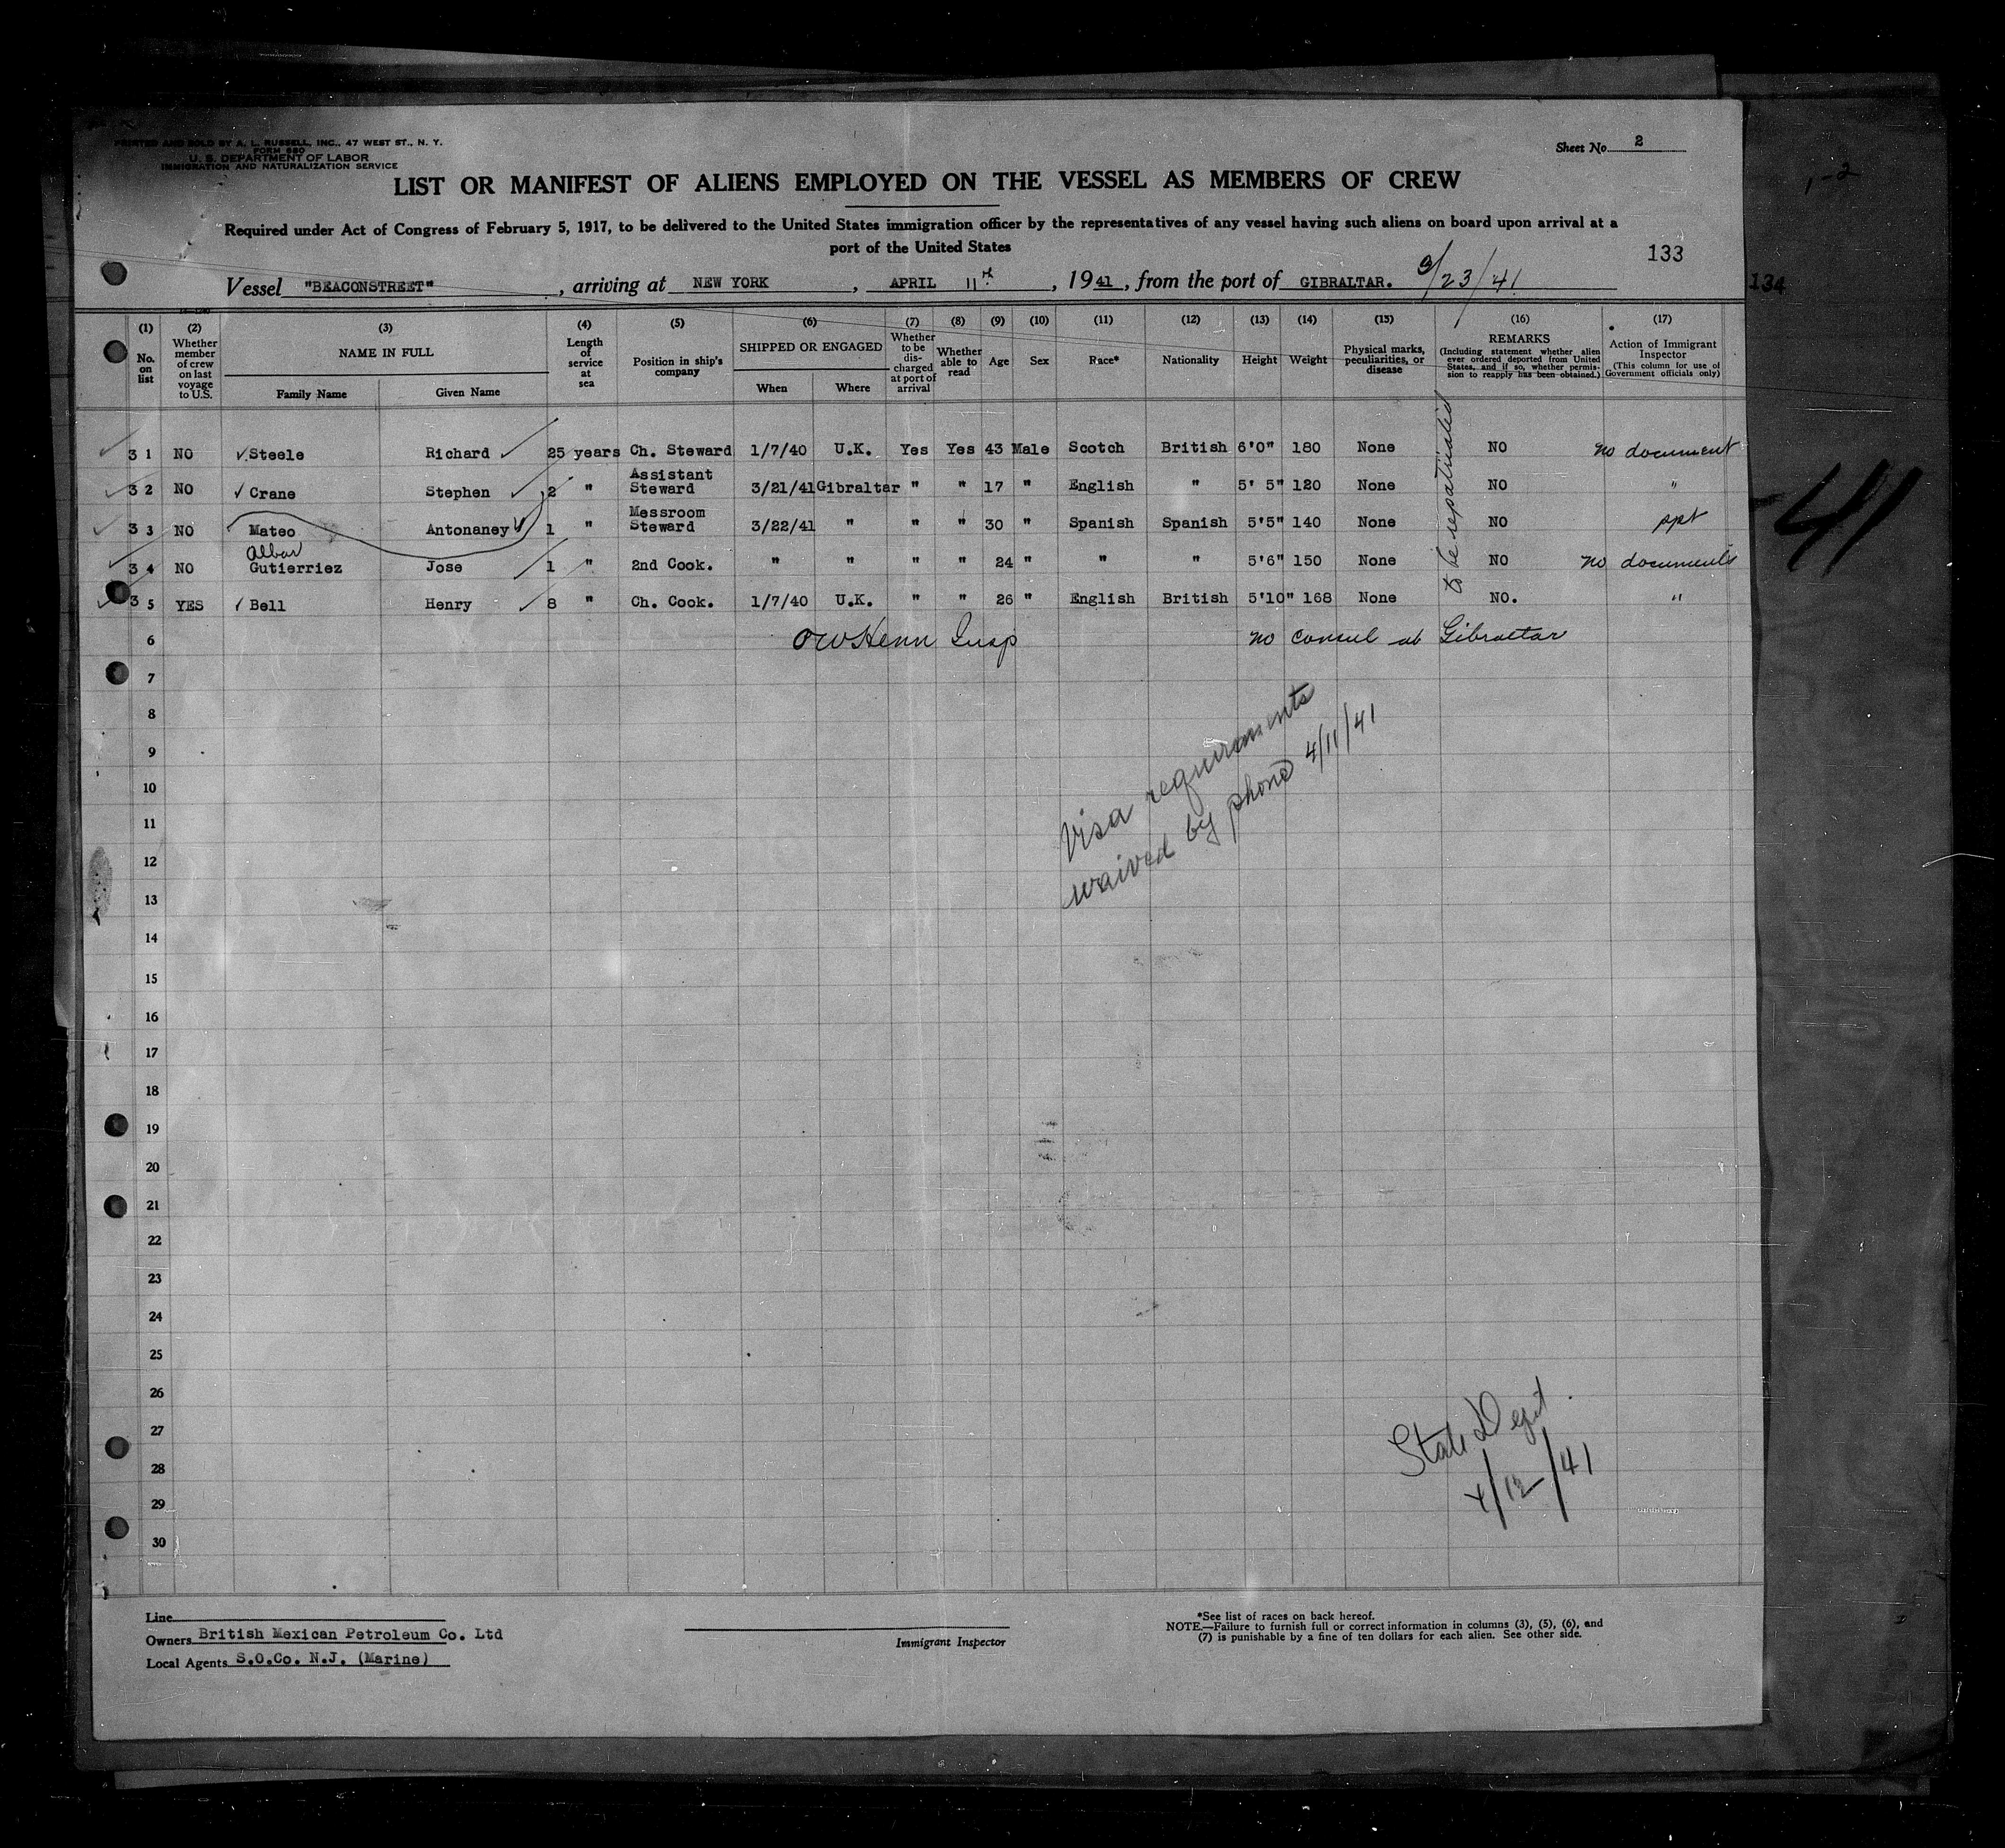 PRINTED AND SOLD BY A. L. RUSSELL, INC., 47 WEST ST., N. Y.
FORM 680
U. S. DEPARTMENT OF LABOR
IMMIGRATION AND NATURALIZATION SERVICE
Sheet No. 2
1-2
LIST OR MANIFEST OF ALIENS EMPLOYED ON THE VESSEL AS MEMBERS OF CREW
Required under Act of Congress of February 5, 1917, to be delivered to the United States immigration officer by the representatives of any vessel having such aliens on board upon arrival at a
port of the United States
133
134
Vessel "BEACONSTREET", arriving at NEW YORK, APRIL 11th, 1941, from the port of GIBRALTAR. 3/23/41
(1) (2) (3) (4) (5) (6) (7) (8) (9) (10) (11) (12) (13) (14) (15) (16) (17)
No. on list
Whether member of crew on last voyage to U.S.
NAME IN FULL
Family Name Given Name
Length of service at sea
Position in ship's company
SHIPPED OR ENGAGED
When Where
Whether to be discharged at port of arrival
Whether able to read
Age
Sex
Race*
Nationality
Height
Weight
Physical marks, peculiarities, or disease
REMARKS
(Including statement whether alien ever ordered deported from United States, and if so, whether permission to reapply has been obtained.)
Action of Immigrant Inspector
(This column for use of Government officials only)
31 NO Steele Richard 25 years Ch. Steward 1/7/40 U.K. Yes Yes 43 Male Scotch British 6'0" 180 None NO no document
32 NO Crane Stephen 2 " Assistant Steward 3/21/41 Gibraltar " " 17 " English " 5' 5" 120 None NO "
33 NO Mateo Antonaney 1 " Messroom Steward 3/22/41 " " " 30 " Spanish Spanish 5'5" 140 None NO ppt
Albar
34 NO Gutierriez Jose 1 " 2nd Cook. " " " " 24 " " " 5'6" 150 None NO no documents
35 YES Bell Henry 8 " Ch. Cook. 1/7/40 U.K. " " 26 " English British 5'10" 168 None NO. "
to be repatriated
41
6 OW Henn Insp no consul at Gibraltar
7
8
9
10
11
12
13
14
15
16
17
18
19
20
21
22
23
24
25
26
27
28
29
30
Visa requirements
waived by phone 4/11/41
State Dept.
4/12/41
Line
Owners British Mexican Petroleum Co. Ltd
Local Agents S.O.Co. N.J. (Marine)
Immigrant Inspector
*See list of races on back hereof.
NOTE.—Failure to furnish full or correct information in columns (3), (5), (6), and
(7) is punishable by a fine of ten dollars for each alien. See other side.